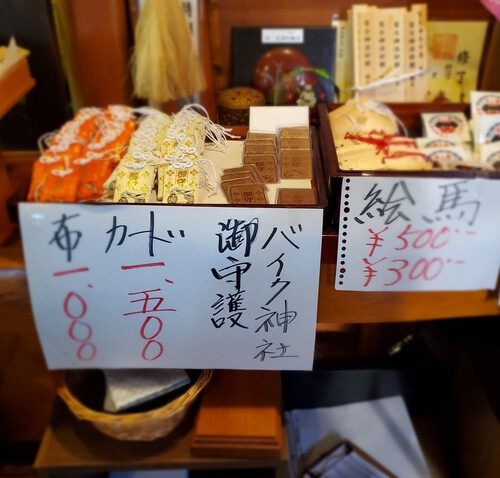 バイク神社
御守護
カード
一、五〇〇
布
一、〇〇〇
絵馬
¥500-
¥300-